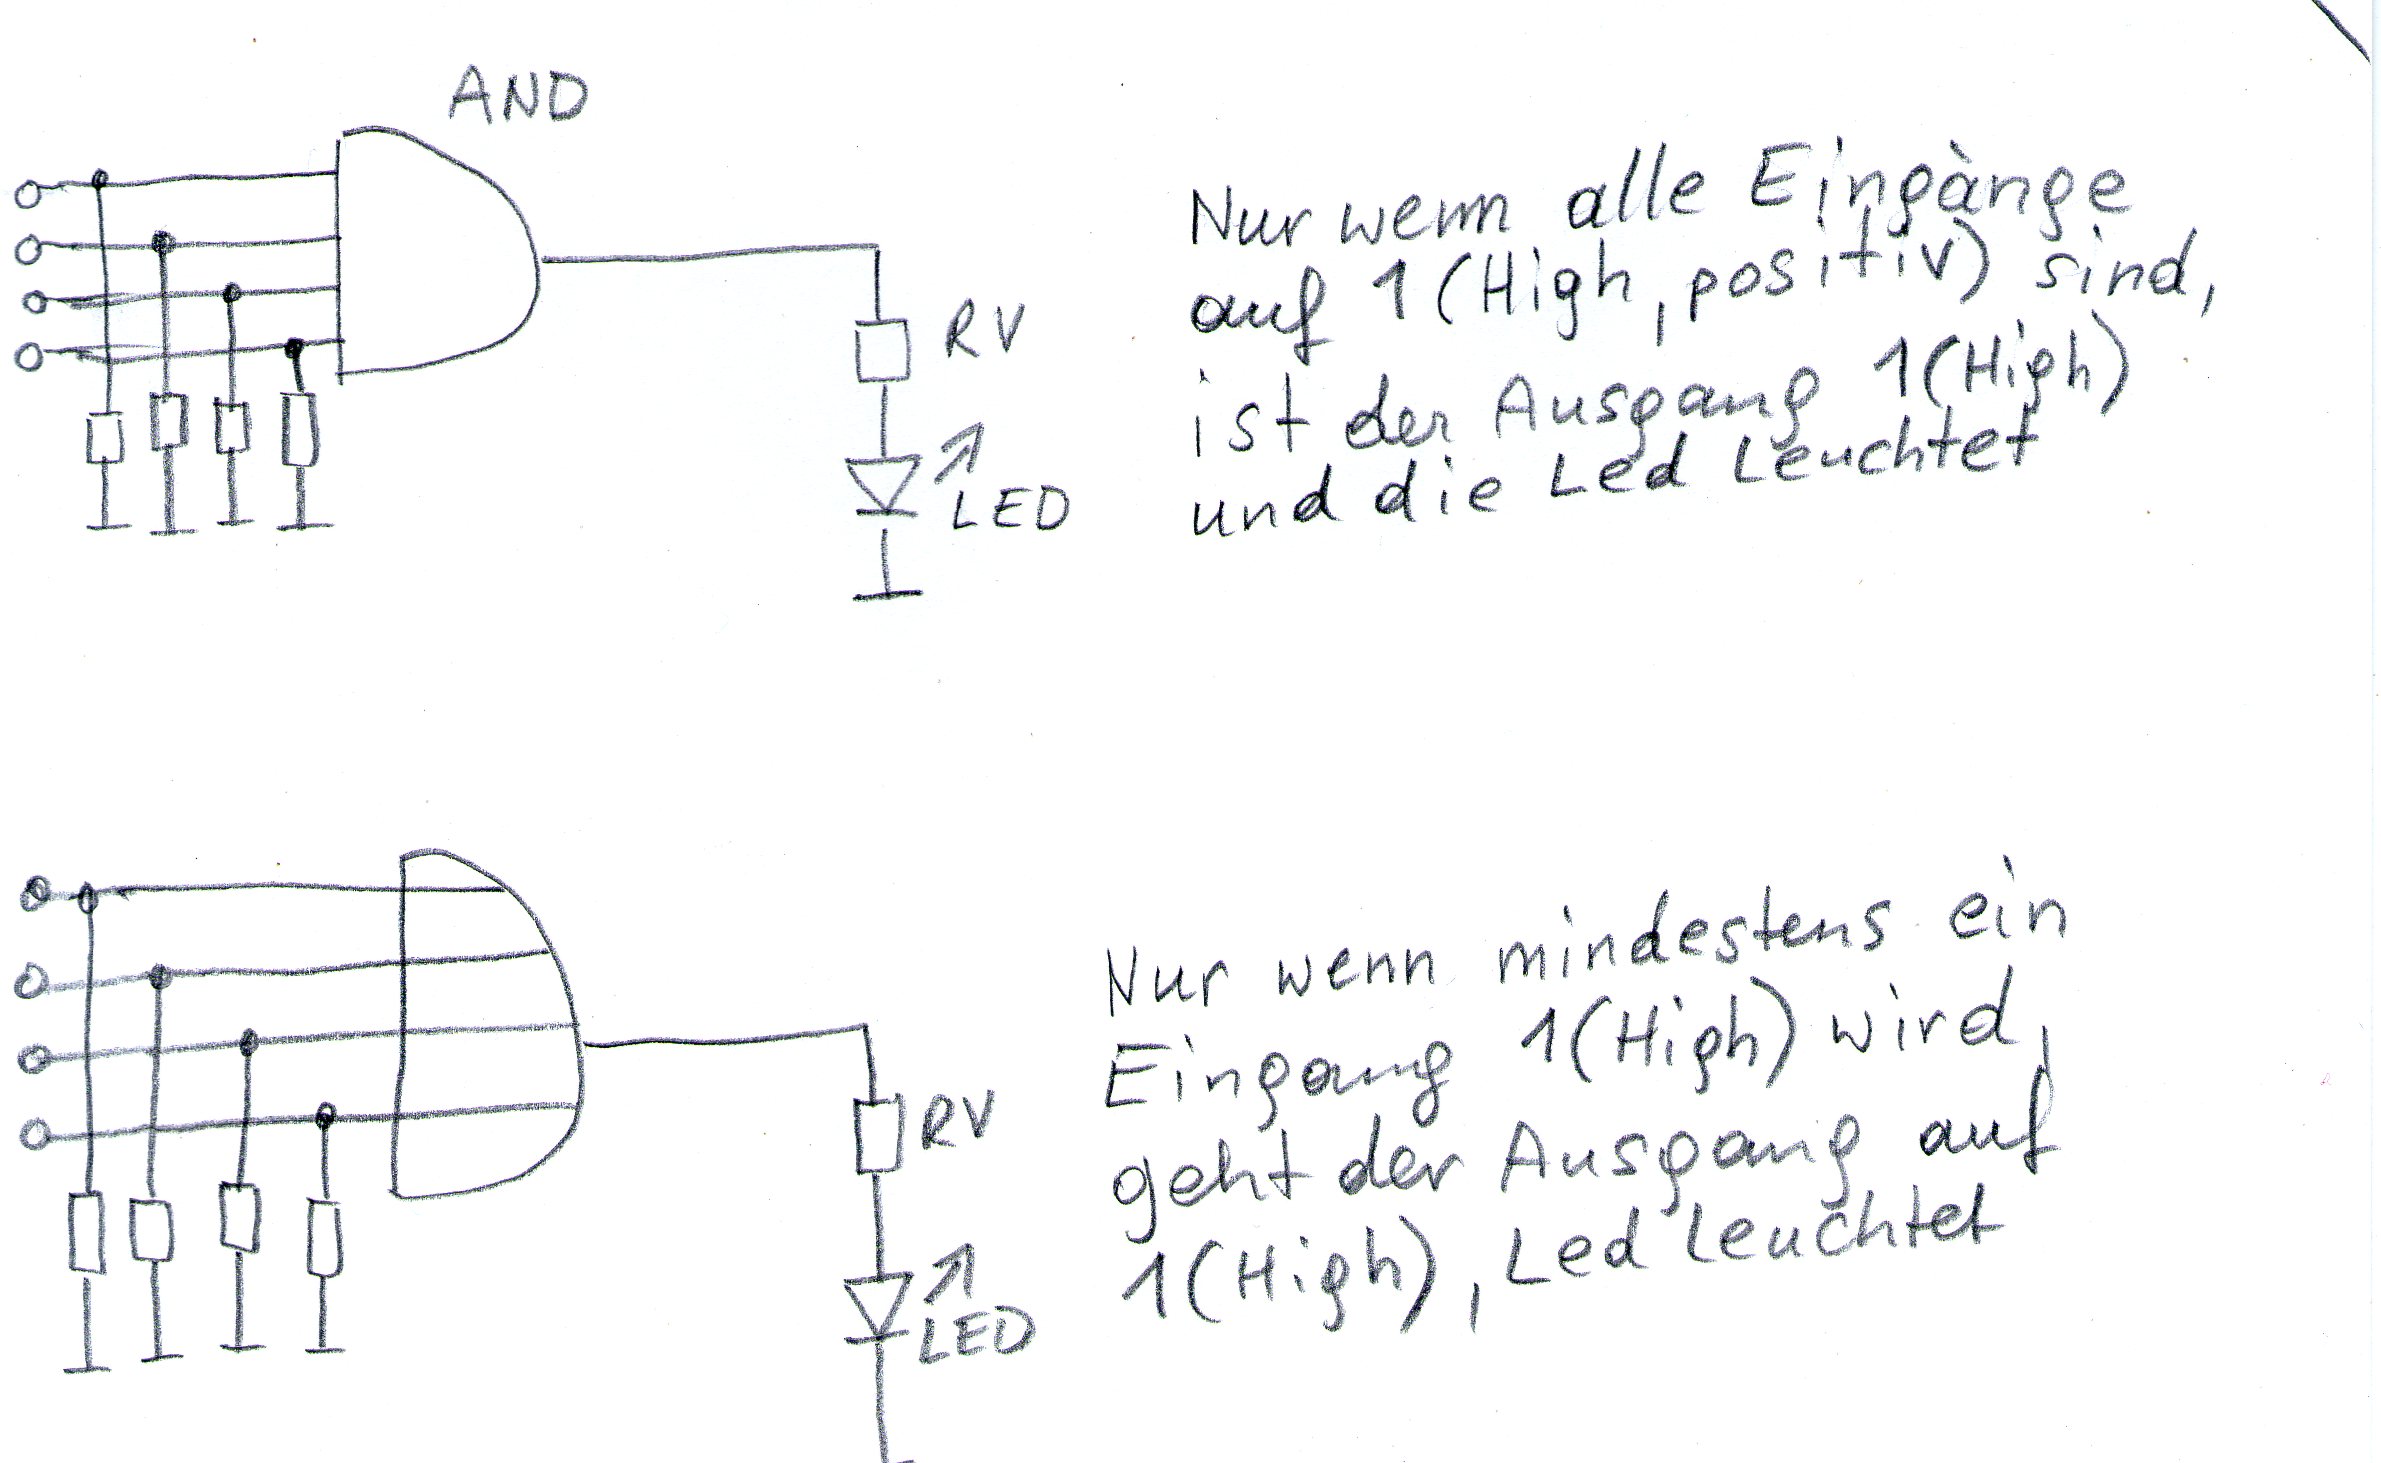 AND
Nur wenn alle Eingänge
auf 1 (High, positiv) sind,
ist der Ausgang 1(High)
und die Led Leuchtet
RV
LED
Nur wenn mindestens ein
Eingang 1(High) wird,
geht der Ausgang auf
1(High), Led Leuchtet
RV
LED